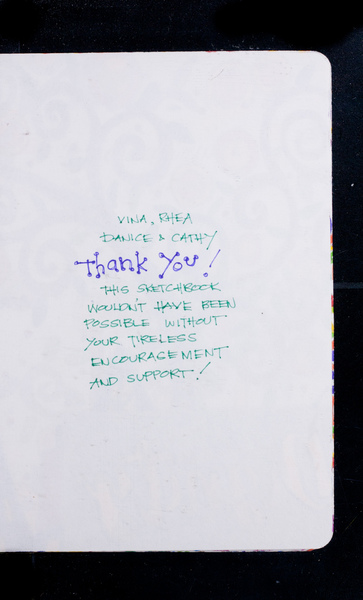 VINA, RHEA
DANICE & CATHY
Thank You!
THIS SKETCHBOOK
WOULDN'T HAVE BEEN
POSSIBLE WITHOUT
YOUR TIRELESS
ENCOURAGEMENT
AND SUPPORT!